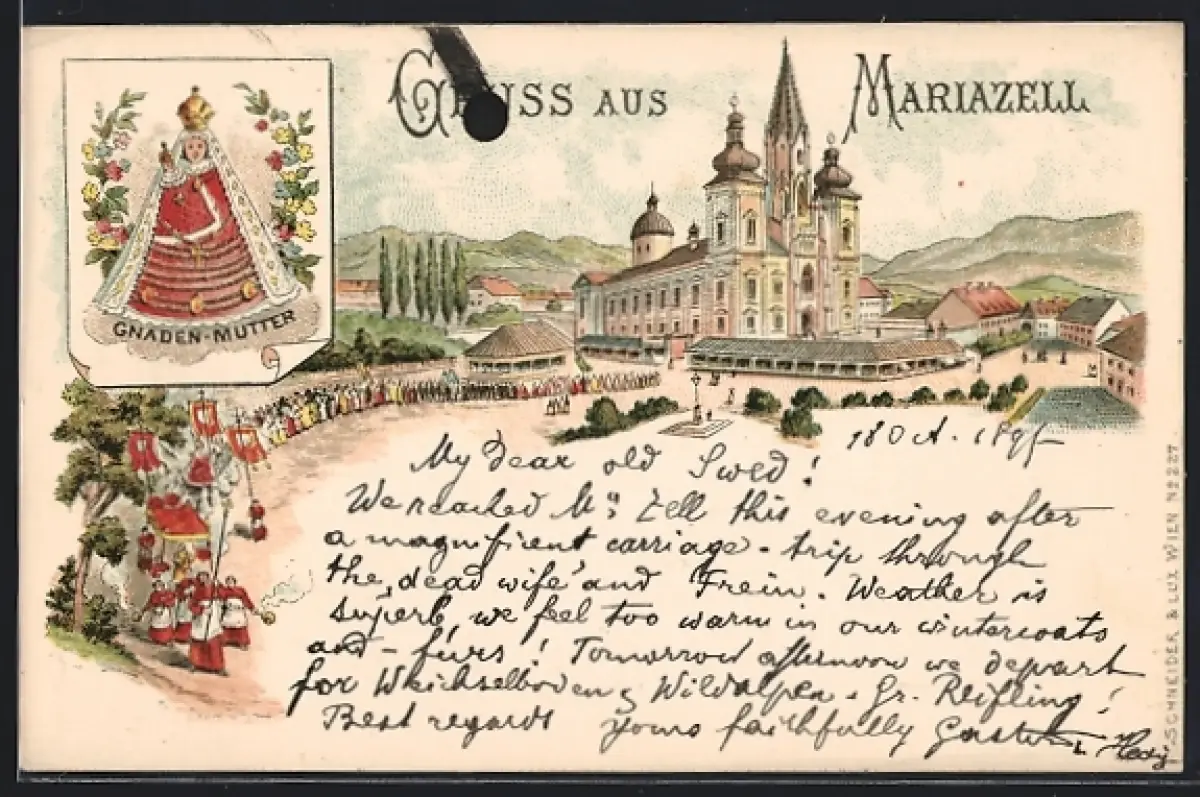 GRUSS AUS MARIAZELL
GNADEN-MUTTER
18 Oct. 189
My dear old Swed!
We reached Ma: Zell this evening after
a magnificent carriage-trip through
the „dead wife" and Frein. Weather is
superb, we feel too warm in our wintercoats
and - furs! Tomorrow afternoon we depart
for Weichselboden & Wildalpen - Gr. Reifling!
Best regards yours faithfully Gaston Hedy
SCHNEIDER & LUX WIEN No 227